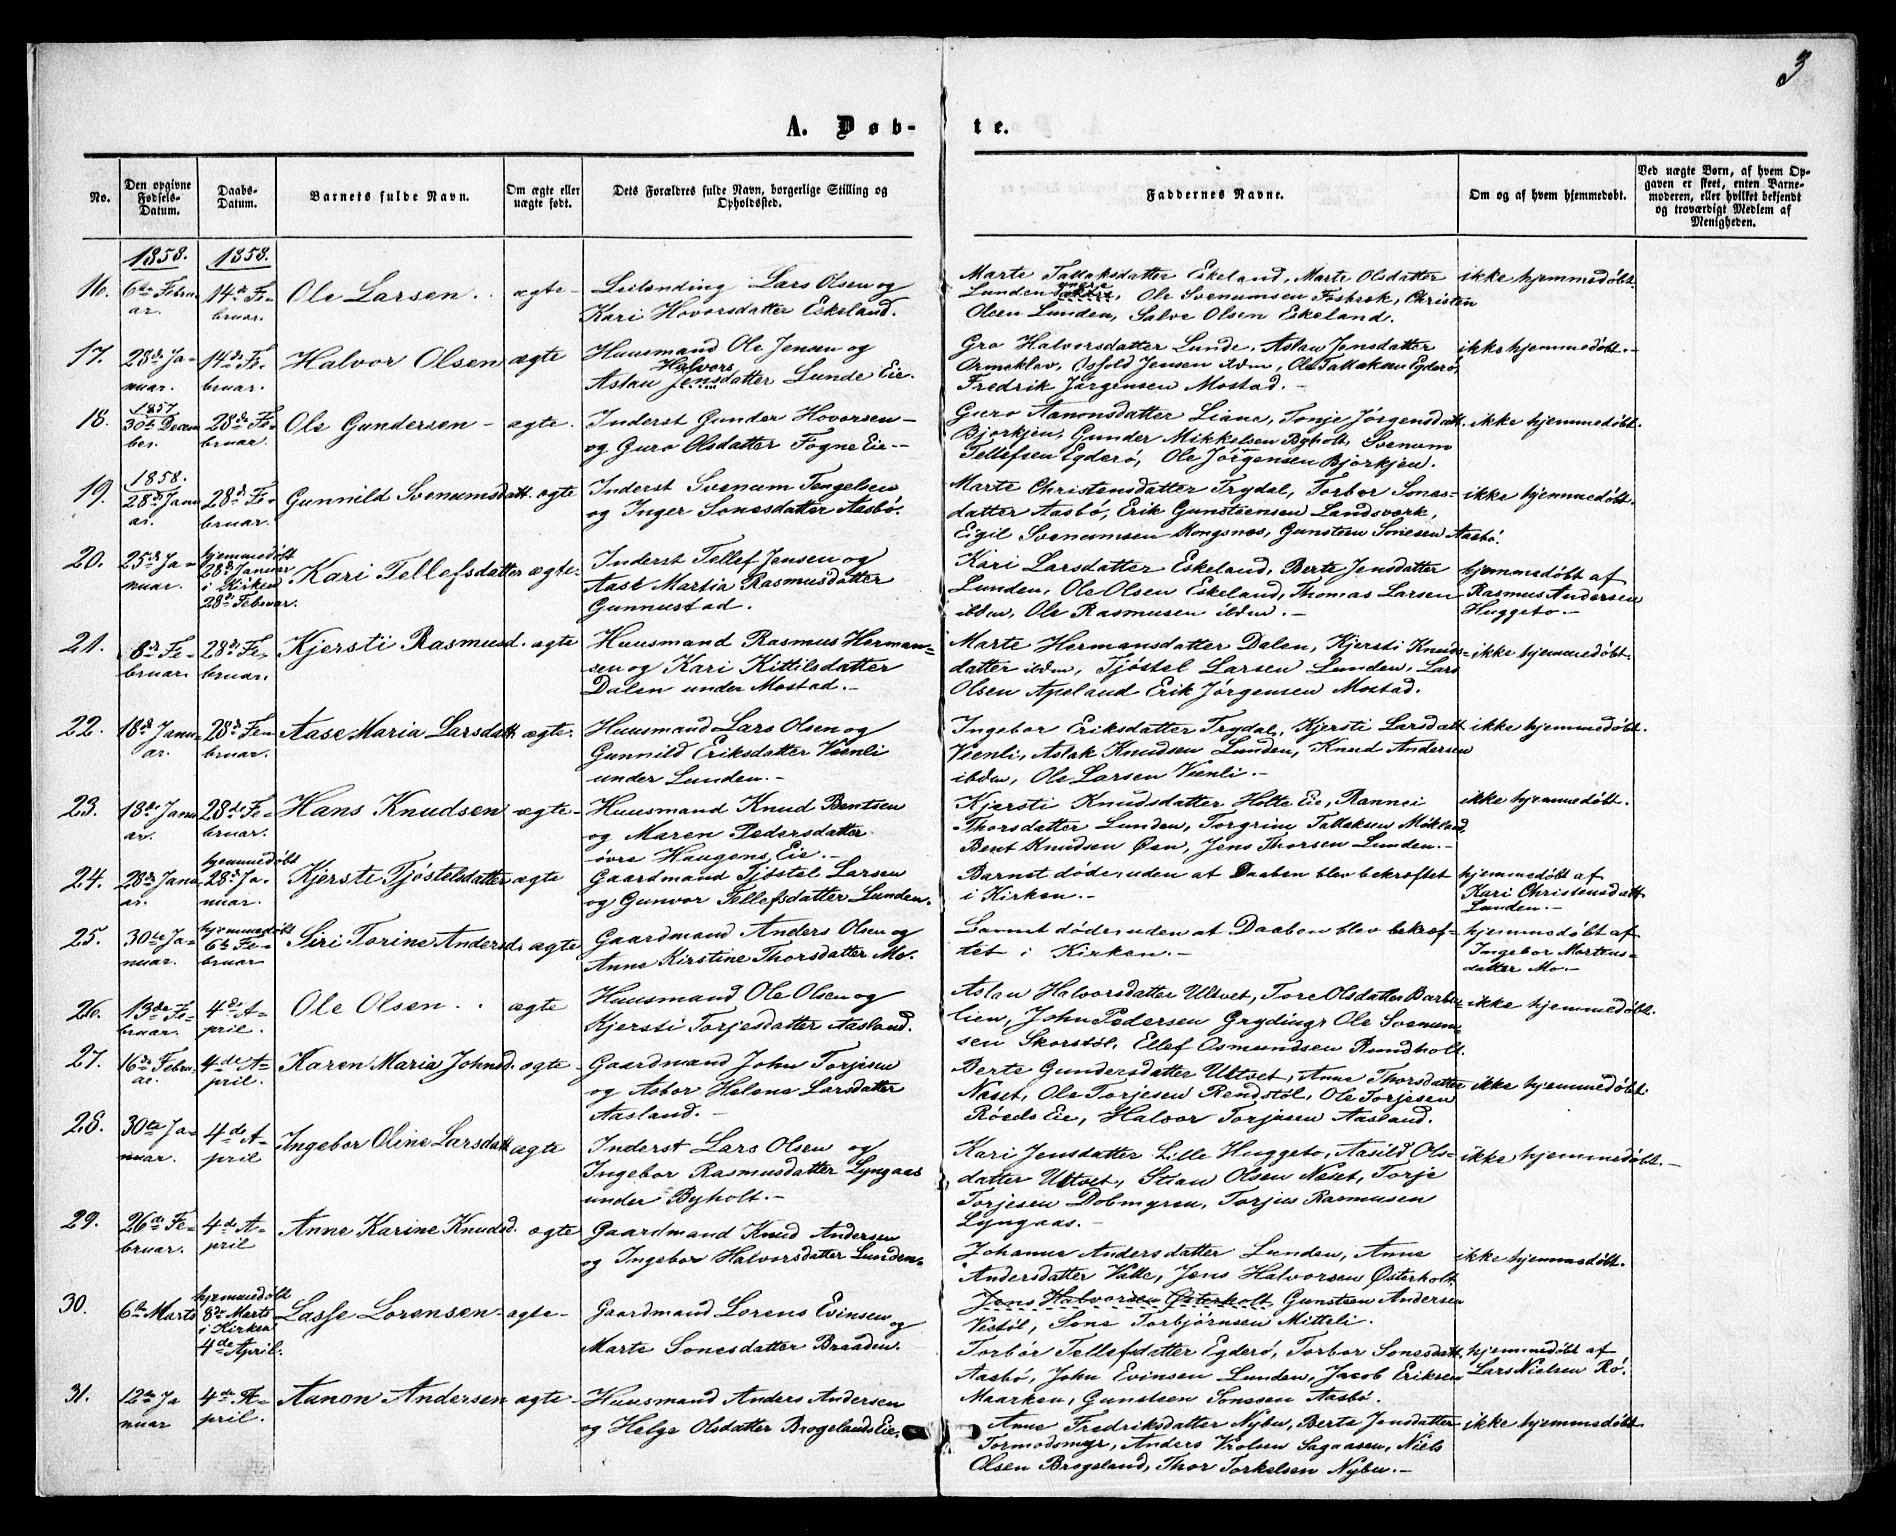 3
A. Døb-
te.
No.
Den opgivne Fødsels-Datum.
Daabs-Datum.
Barnets fulde Navn.
Om ægte eller uægte født.
Dets Forældres fulde Navn, borgerlige Stilling og Opholdssted.
Faddernes Navne.
Om og af hvem hjemmedøbt.
Ved uægte Børn, af hvem Opgaven er skeet, enten Barnemoderen, eller hvilket bekjendt og troværdigt Medlem af Menigheden.
1858. 1858.
16. 6te Februar. 14de Februar. Ole Larsen. ægte
Leilending Lars Olsen og
Kari Hovorsdatter Eskeland.
Marte Tallaksdatter Eskeland, Marte Olsdatter
Lunden yngre, Ole Svenumsen Fosbrok, Christen
Olsen Lunden, Salve Olsen Eskeland.
ikke hjemmedøbt.
17. 28de Januar. 14de Februar. Halvor Olsen ægte
Huusmand Ole Jensen og
Aslau Halvors Jensdatter Lunde Eie.
Gro Halvorsdatter Lunde, Aslau Jensdatter
Ormeklev, Osfold Jensen ibdm, Ole Tallaksen Egderø,
Fredrik Jørgensen Mostad.
ikke hjemmedøbt.
18. 1857 30te December. 28de Februar. Ole Gundersen ægte.
Inderst Gunder Hovorsen
og Guro Olsdatter Fogne Eie.
Guro Aanonsdatter Liane, Tonje Jørgensdatt.
Bjorkjen, Gunder Mikkelsen Byholt, Svenum
Tellefsen Egderø, Ole Jørgensen Bjorkjen.
ikke hjemmedøbt.
19. 1858. 28de Januar. 28de Februar. Gunnild Svenumsdatt. ægte
Inderst Svenum Tengelsen
og Inger Sonesdatter Aasbø.
Marte Christensdatter Trydal, Torbor Sones-
datter Aasbø, Erik Gunstensen Landsverk,
Eigil Svenumsen Kongsnes, Gunsteen Sonesen Aasbø.
ikke hjemmedøbt.
20. 25de Januar. hjemmedøbt 28de Januar i Kirken 28de Februar. Kari Tellefsdatter ægte.
Inderst Tellef Jensen og
Aase Martia Rasmusdatter
Gunnustad.
Kari Larsdatter Eskeland, Berte Jensdatter
Lunden, Ole Olsen Eskeland, Thomas Larsen
ibdm, Ole Rasmusen ibdm.
hjemmedøbt af
Rasmus Andersen
Huggeto.
21. 8de Februar. 28de Februar. Kjersti Rasmusd. ægte
Huusmand Rasmus Herman-
sen og Kari Kittilsdatter
Dalen under Mostad.
Marte Hermansdatter Dalen, Kjersti Knuds-
datter ibdm, Tjøstel Larsen Lunden, Lars
Olsen Apeland Erik Jørgensen Mostad.
ikke hjemmedøbt.
22. 18de Januar. 28de Februar. Aase Maria Larsdatt. ægte.
Huusmand Lars Olsen og
Gunnild Eriksdatter Veenli
under Lunden.
Ingebor Eriksdatter Trydal, Kjersti Larsdatt.
Veenli, Aslak Knudsen Lunden, Knud Andersen
ibdm, Ole Larsen Veenli.
ikke hjemmedøbt.
23. 18de Januar. 28de Februar. Hans Knudsen ægte
Huusmand Knud Bentsen
og Maren Pedersdatter
øvre Haugens Eie.
Kjersti Knudsdatter Holte Eie, Rannei
Thorsdatter Lunden, Torgrim Tallaksen Mekland,
Bent Knudsen Øen, Jens Thorsen Lunden.
ikke hjemmedøbt.
24. 28de Januar. hjemmedøbt 28de Januar. Kjersti Tjøstelsdatter ægte
Gaardmand Tjøstel Larsen
og Gunvor Tellefsdatter Lunden.
Barnet døde, uden at Daaben blev bekræftet
i Kirken.
hjemmedøbt af
Kari Christensdatt.
Lunden.
25. 30te Januar. hjemmedøbt 6te Februar Siri Torine Andersd. ægte
Gaardmand Anders Olsen og
Anne Kirstine Thorsdatter Mo.
Barnet døde, uden at Daaben blev bekræf-
tet i Kirken.
hjemmedøbt af
Ingebor Mortens-
datter Mo.
26. 13de Februar. 4de April. Ole Olsen ægte
Huusmand Ole Olsen og
Kjersti Torjesdatter Aasland.
Aslau Halvorsdatter Ultvet, Tore Olsdatter Barbu-
lien, John Pedersen Gryting, Ole Svenum-
sen Skorstøl, Ellef Osmundsen Rundholt.
ikke hjemmedøbt.
27. 16de Februar. 4de April. Karen Maria Johnsd. ægte
Gaardmand John Torjesen
og Asbor Helene Larsdatter
Aasland.
Berte Gundersdatter Ultvet, Anne Thorsdatter
Næset, Ole Torjesen Rendstøl, Ole Torjesen
Røeds Eie, Halvor Torjesen Aasland.
ikke hjemmedøbt
28. 30te Januar. 4de April Ingebor Oline Larsdatt. ægte
Inderst Lars Olsen og
Ingebor Rasmusdatter Lyngaas
under Byholt.
Kari Jensdatter Lille Huggeto, Aasild Ols-
datter Ultvet, Stian Olsen Næset, Torje
Torjesen Dobmyren, Torjus Rasmusen
Lyngaas.
ikke hjemmedøbt.
29. 26de Februar. 4de April Anne Karine Knudsd. ægte
Gaardmand Knud Andersen
og Ingebor Halvorsdatter Lunden.
Johanne Andersdatter Lunden, Anne
Andersdatter Valle, Jens Halvorsen Østerholt
Jens Halvorsen Østerholt, Gunsteen Andersen
Vestøl, Sone Torbjørnsen Mitteli.
ikke hjemmedøbt.
30. 6te Marts hjemmedøbt 8de Marts i Kirken 4de April. Lasse Lorensen ægte
Gaardmand Lorens Evinsen og
Marte Sonesdatter Braaden.
Torbør Tellefsdatter Egderø, Torbor Sonesdatt.
Aasbø, John Evinsen Lunden, Jacob Eriksen
Maarken, Gunsteen Sonesen Aasbø.
hjemmedøbt af
Lars Nielsen Rø.
31. 12te Januar 4de April. Aanon Andersen ægte
Huusmand Anders Andersen
og Helge Olsdatter Brogelands Eie.
Anne Fredriksdatter Nybu, Berte Jensdatter
Tormodsmyr, Anders Vrolsen Sagaasen, Niels
Olsen Brogeland, Thor Torkelsen Nybu.
ikke hjemmedøbt